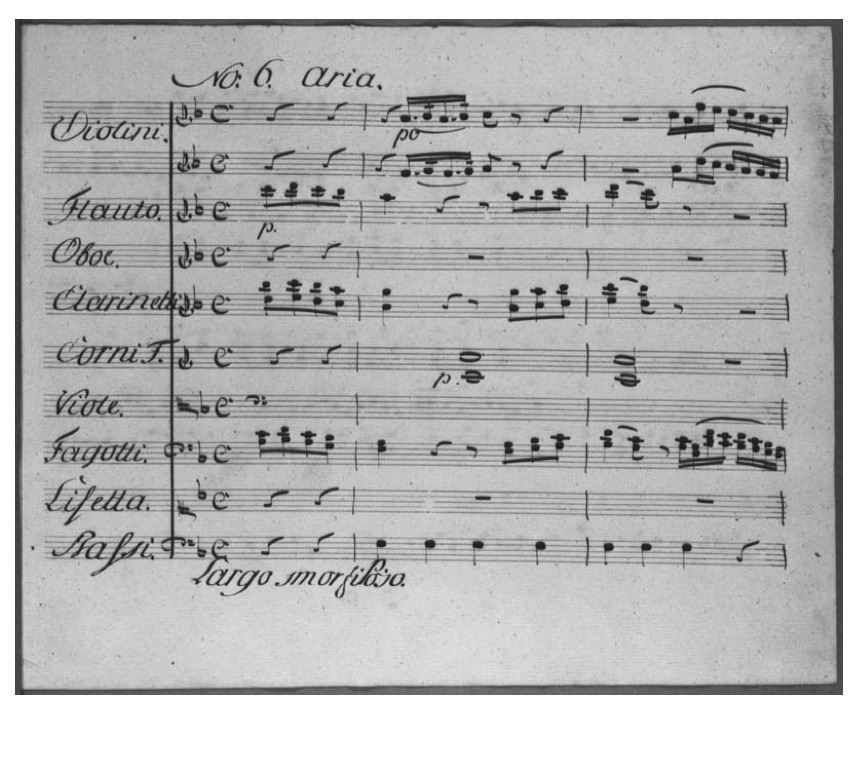 No: 6. Aria.
Violini.
po
Flauto.
p.
Oboe.
Clarinetti
Corni F.
p.
Viole.
Fagotti.
Lisetta.
Bassi.
Largo smorfioso.